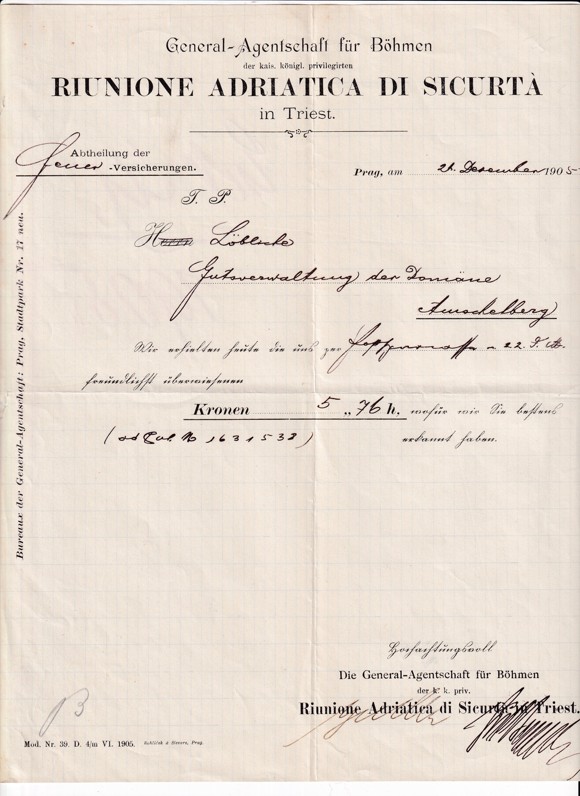 General-Agentschaft für Böhmen
der kais. königl. privilegirten
RIUNIONE ADRIATICA DI SICURTÀ
in Triest.
Abtheilung der
Feuer-Versicherungen.
Prag, am 21. Dezember 1905
T. P.
Herrn Löbliche
Gutsverwaltung der Domäne
Amschelberg
Wir erhielten heute die uns per 22. d.
freundlichst überwiesenen
Kronen 5 „ 76 h. wofür wir Sie bestens
(ad Pol No 1631538) erkannt haben.
Bureaux der General-Agentschaft: Prag, Stadtpark Nr. 17 neu.
Hochachtungsvoll
Die General-Agentschaft für Böhmen
der k. k. priv.
Riunione Adriatica di Sicurtà in Triest.
B
Mod. Nr. 39. D. 4/m VI. 1905.